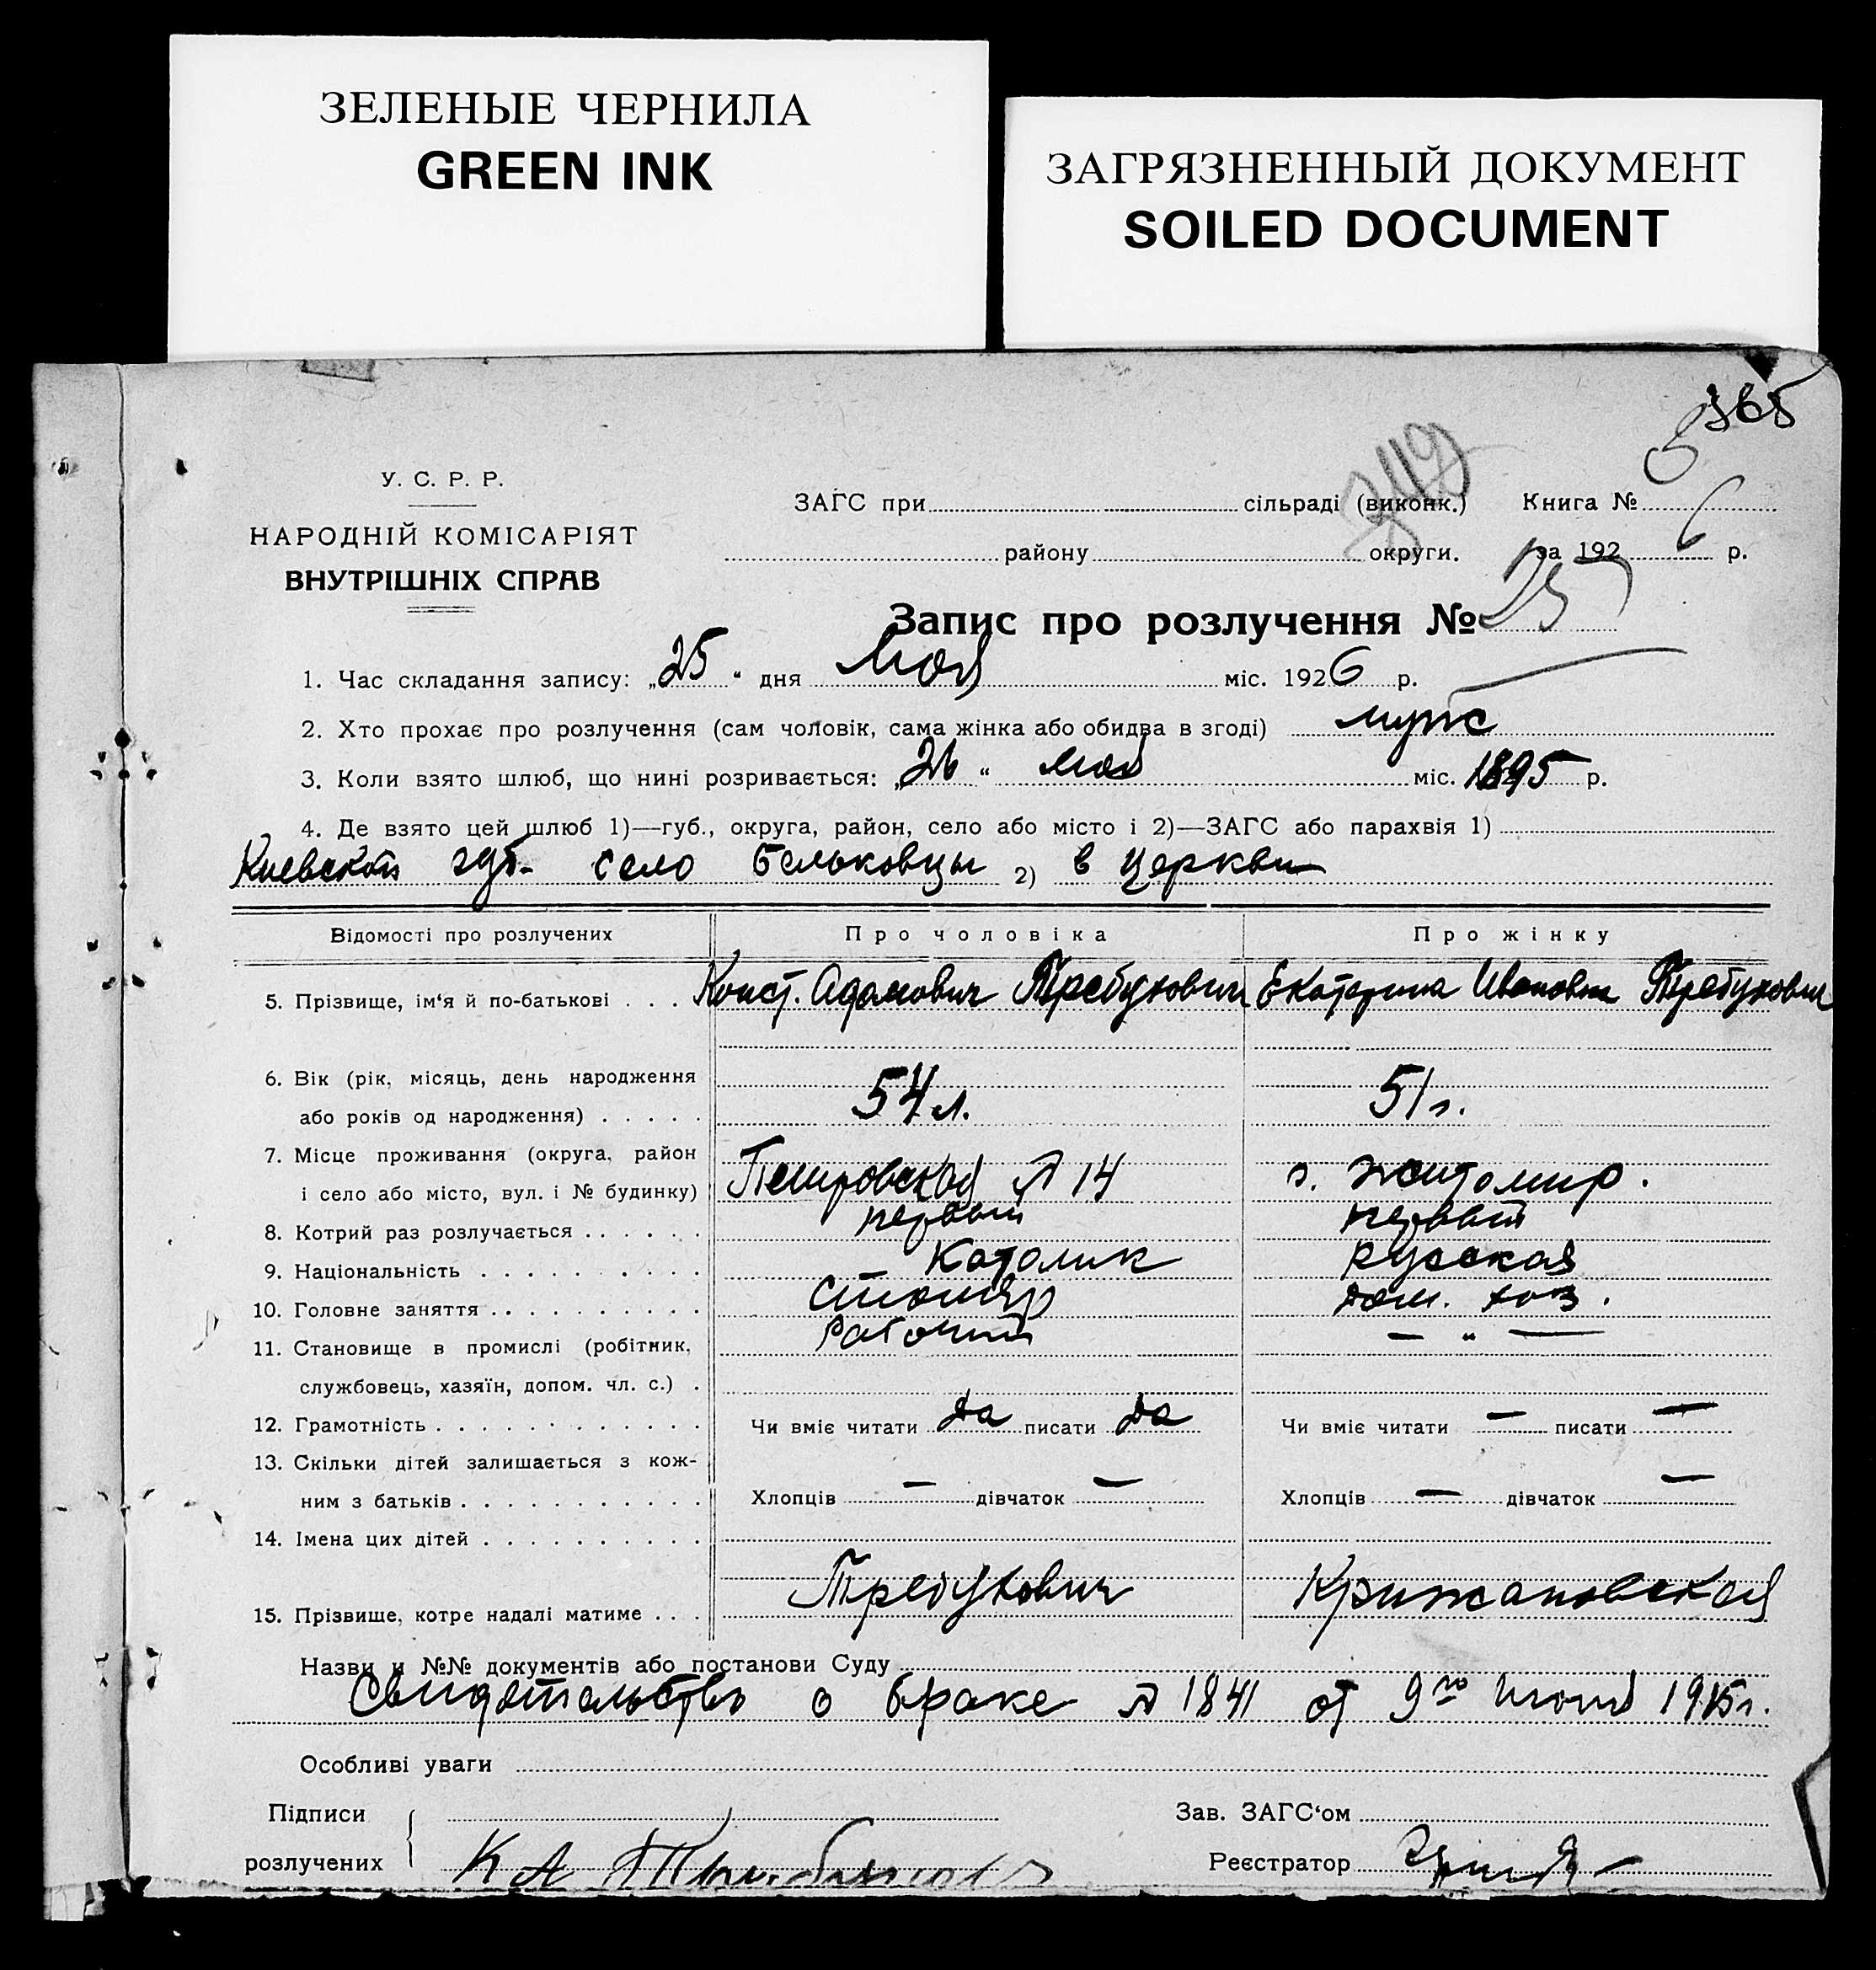 ЗЕЛЕНЫЕ ЧЕРНИЛА
GREEN INK
ЗАГРЯЗНЕННЫЙ ДОКУМЕНТ
SOILED DOCUMENT
365
У. С. Р. Р.
НАРОДНІЙ КОМІСАРІЯТ
ВНУТРІШНІХ СПРАВ
ЗАГС при сільраді (виконк.) Книга №
району округи. за 1926 р.
Запис про розлучення № 25
1. Час складання запису: „25“ дня мая міс. 1926 р.
2. Хто прохає про розлучення (сам чоловік, сама жінка або обидва в згоді) муж
3. Коли взято шлюб, що нині розривається: „26“ мая міс. 1895 р.
4. Де взято цей шлюб 1)—губ., округа, район, село або місто і 2)—ЗАГС або парахвія 1)
Киевской губ. село Бельковцы 2) в церкви
Відомості про розлучених Про чоловіка Про жінку
5. Прізвище, ім‘я й по-батькові . . . Конст. Адамович Требухович Екатерина Ивановна Требухович
6. Вік (рік, місяць, день народження
або років од народження) . . . . . 54 л. 51 г.
7. Місце проживання (округа, район
і село або місто, вул. і № будинку) Петровская № 14 г. Житомир.
8. Котрий раз розлучається . . . . . . первый первый
9. Національність . . . . . . . . . . Католик русская
10. Головне заняття . . . . . . . . . . столяр дом. хоз.
11. Становище в промислі (робітник, рабочий — „ —
службовець, хазяїн, допом. чл. с.) .
12. Грамотність . . . . . . . . . . . . Чи вміє читати да писати да Чи вміє читати — писати —
13. Скільки дітей залишається з кож-
ним з батьків . . . . . . . . . . . Хлопців — дівчаток — Хлопців — дівчаток —
14. Імена цих дітей . . . . . . . . . .
15. Прізвище, котре надалі матиме . . . Требухович Крижановская
Назви и №№ документів або постанови Суду
Свидетельство о браке № 1841 от 9го июня 1915 г.
Особливі уваги
Підписи Зав. ЗАГС‘ом
розлучених К А Реєстратор